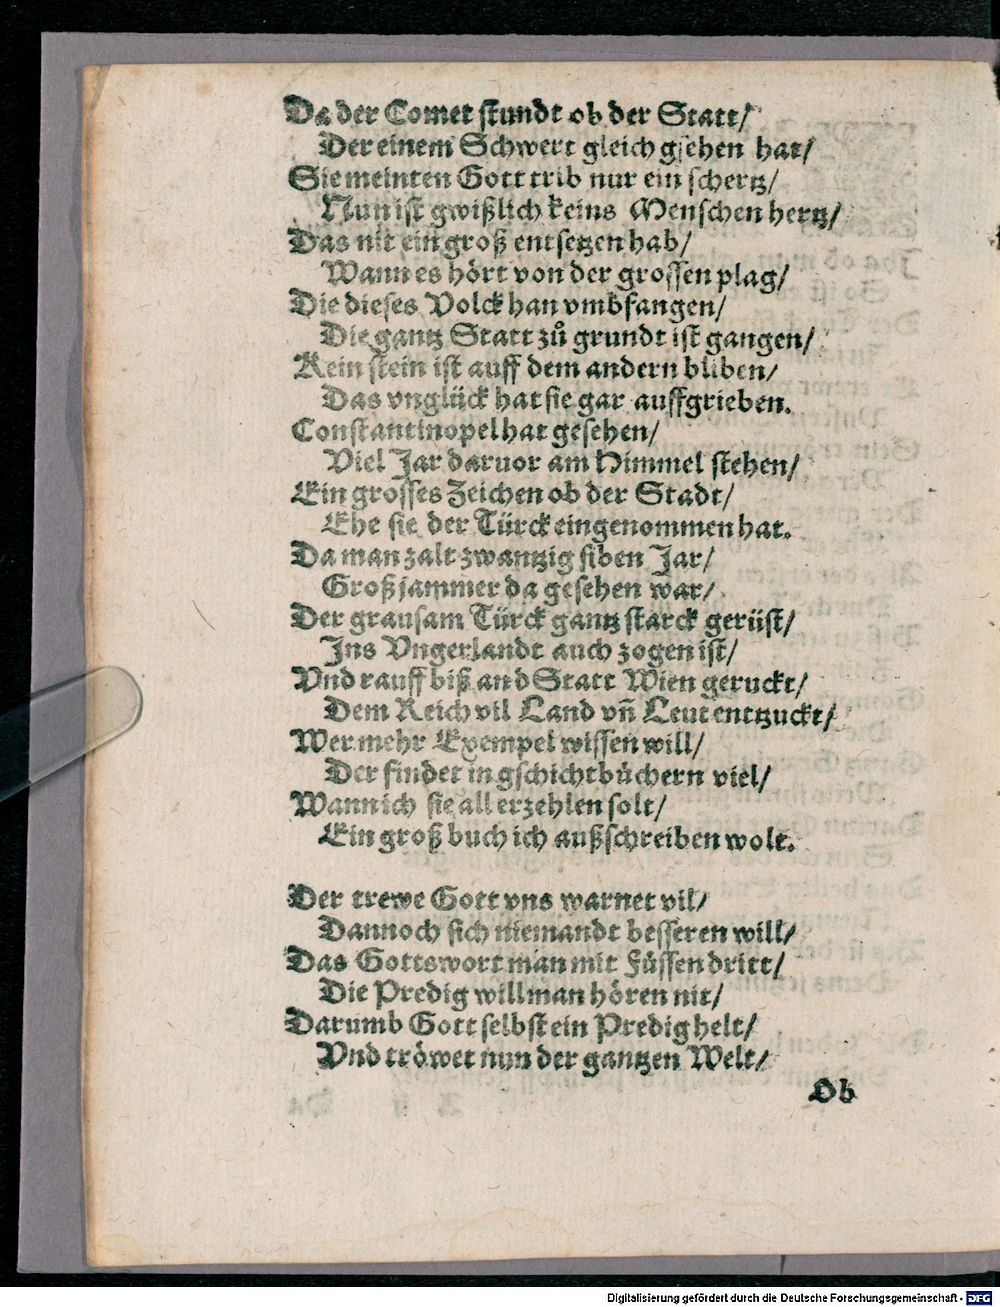 Da der Comet stundt ob der Statt/
Der einem Schwert gleich gsehen hat/
Sie meinten Gott trib nur ein schertz/
Nun ist gwißlich keins Menschen hertz/
Das nit ein groß entsetzen hab/
Wann es hört von der grossen plag/
Die dieses Volck han vmbfangen/
Die gantz Statt zů grundt ist gangen/
Kein stein ist auff dem andern bliben/
Das vnglück hat sie gar auffgrieben.
Constantinopel hat gesehen/
Viel Jar daruor am Himmel stehen/
Ein grosses Zeichen ob der Stadt/
Ehe sie der Türck eingenommen hat.
Da man zalt zwantzig siben Jar/
Groß jammer da gesehen war/
Der grausam Türck gantz starck gerüst/
Ins Vngerlandt auch zogen ist/
Vnd rauff biß an d Statt Wien geruckt/
Dem Reich vil Land vñ Leut entzuckt/
Wer mehr Exempel wissen will/
Der findet in gschichtbüchern viel/
Wann ich sie all erzehlen solt/
Ein groß buch ich außschreiben wolt.
Der trewe Gott vns warnet vil/
Dannoch sich niemandt besseren will/
Das Gottswort man mit Füssen dritt/
Die Predig will man hören nit/
Darumb Gott selbst ein Predig helt/
Vnd tröwet nun der gantzen Welt/
Ob
Digitalisierung gefördert durch die Deutsche Forschungsgemeinschaft - DFG